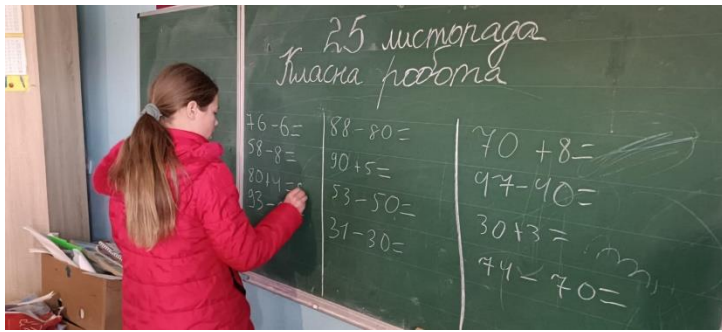 25 листопада
Класна робота
76-6=
58-8=
80+4=
93-
88-80=
90+5=
53-50=
31-30=
70+8=
97-90=
30+3=
74-70=